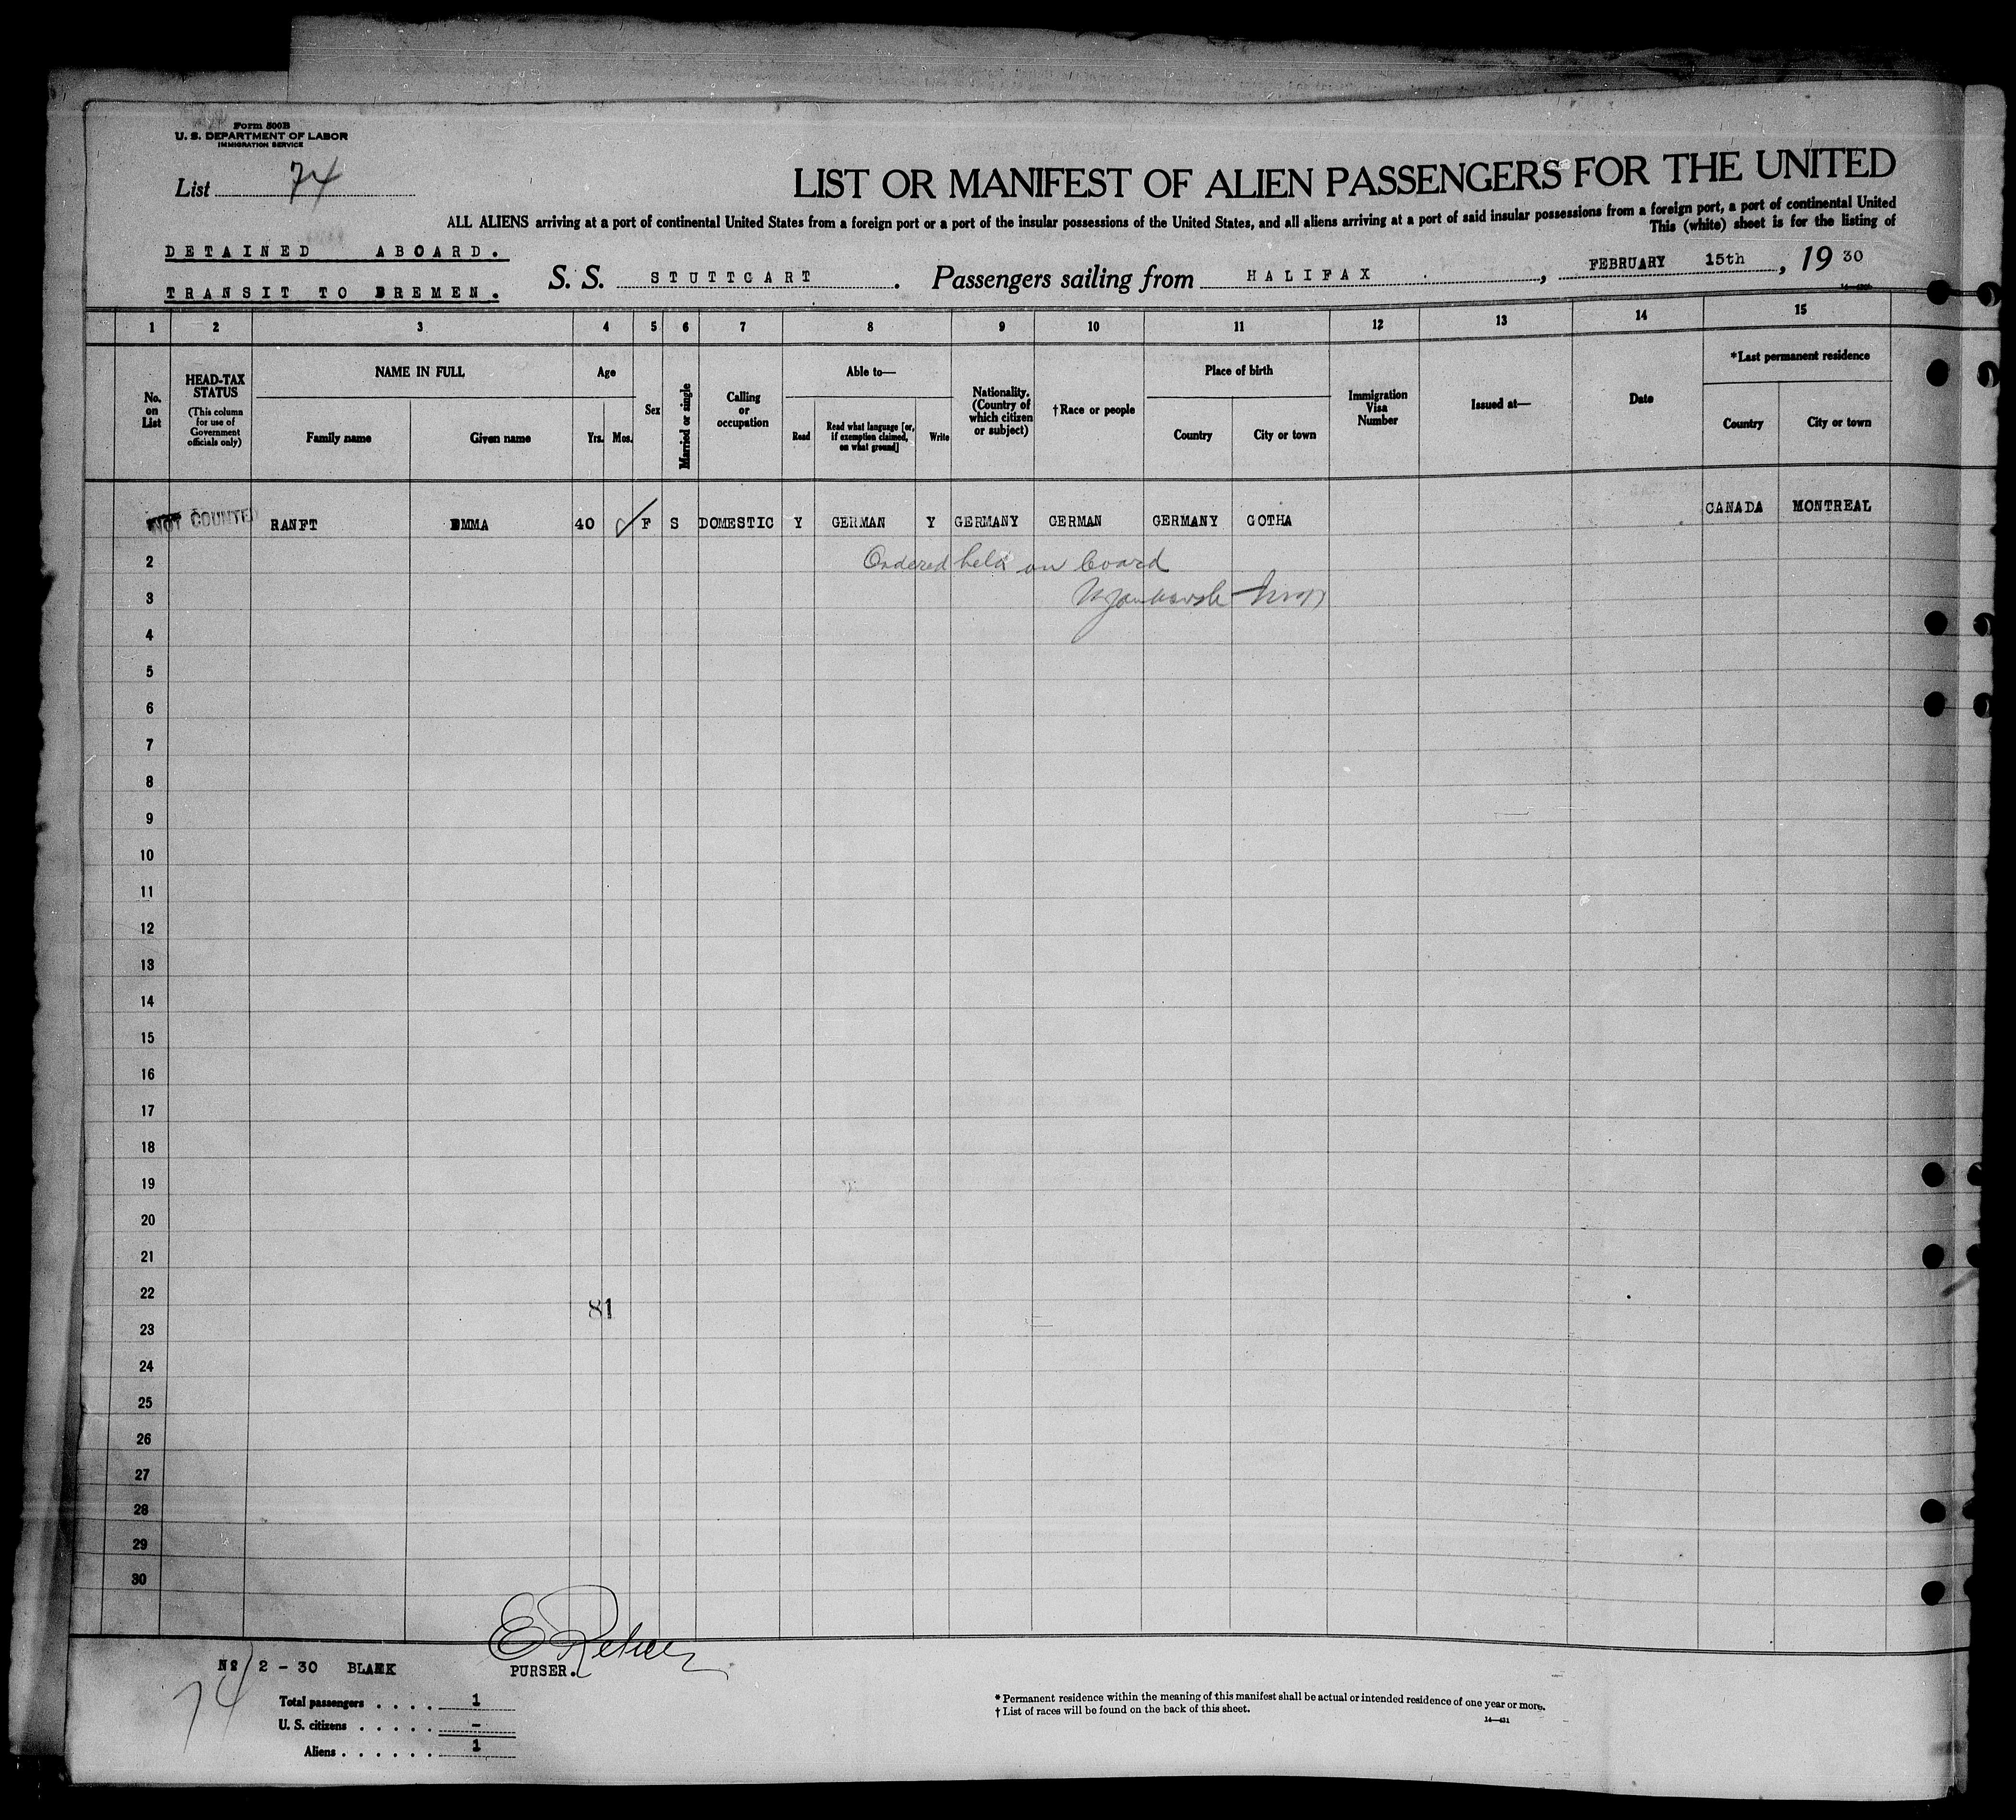 Form 500B
U. S. DEPARTMENT OF LABOR
IMMIGRATION SERVICE
List 74
LIST OR MANIFEST OF ALIEN PASSENGERS FOR THE UNITED
ALL ALIENS arriving at a port of continental United States from a foreign port or a port of the insular possessions of the United States, and all aliens arriving at a port of said insular possessions from a foreign port, a port of continental United
This (white) sheet is for the listing of
DETAINED ABOARD.
TRANSIT TO BREMEN.
S. S. STUTTGART. Passengers sailing from HALIFAX, FEBRUARY 15th, 19 30
1 2 3 4 5 6 7 8 9 10 11 12 13 14 15
No. on List
HEAD-TAX STATUS
(This column for use of Government officials only)
NAME IN FULL
Family name
Given name
Age
Yrs.
Mos.
Sex
Married or single
Calling or occupation
Able to—
Read
Read what language [or, if exemption claimed, on what ground]
Write
Nationality. (Country of which citizen or subject)
†Race or people
Place of birth
Country
City or town
Immigration Visa Number
Issued at—
Date
*Last permanent residence
Country
City or town
NOT COUNTED RANFT EMMA 40 F S DOMESTIC Y GERMAN Y GERMANY GERMAN GERMANY GOTHA CANADA MONTREAL
2 Ordered held on board
3
4
5
6
7
8
9
10
11
12
13
14
15
16
17
18
19
20
21
22
81
23
24
25
26
27
28
29
30
No 2 - 30 BLANK
PURSER.
74
Total passengers . . . . 1
U. S. citizens . . . . . -
Aliens . . . . . . 1
* Permanent residence within the meaning of this manifest shall be actual or intended residence of one year or more.
† List of races will be found on the back of this sheet.
14—431